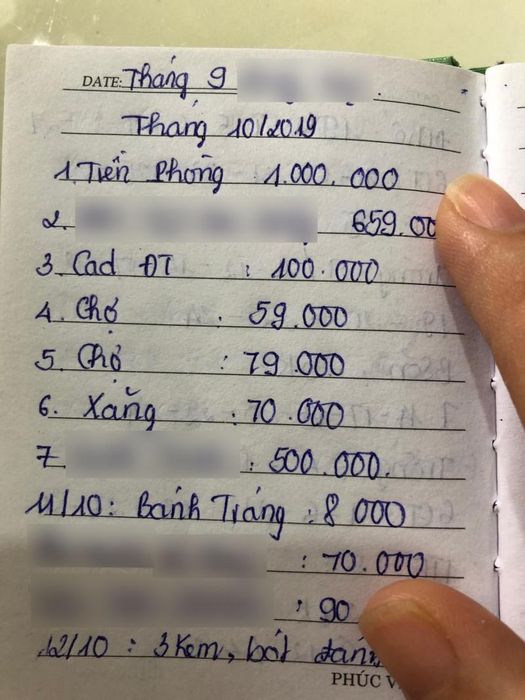 DATE: Tháng 9
Tháng 10/2019
1. Tiền Phòng : 1.000.000
2. 659.00
3. Cad ĐT : 100.000
4. Chợ : 59.000
5. Chợ : 79.000
6. Xăng : 70.000
7. : 500.000.
11/10 : Bánh Tráng : 8 000
: 70.000
: 90
12/10 : 3 Kem, bót đán
PHÚC V